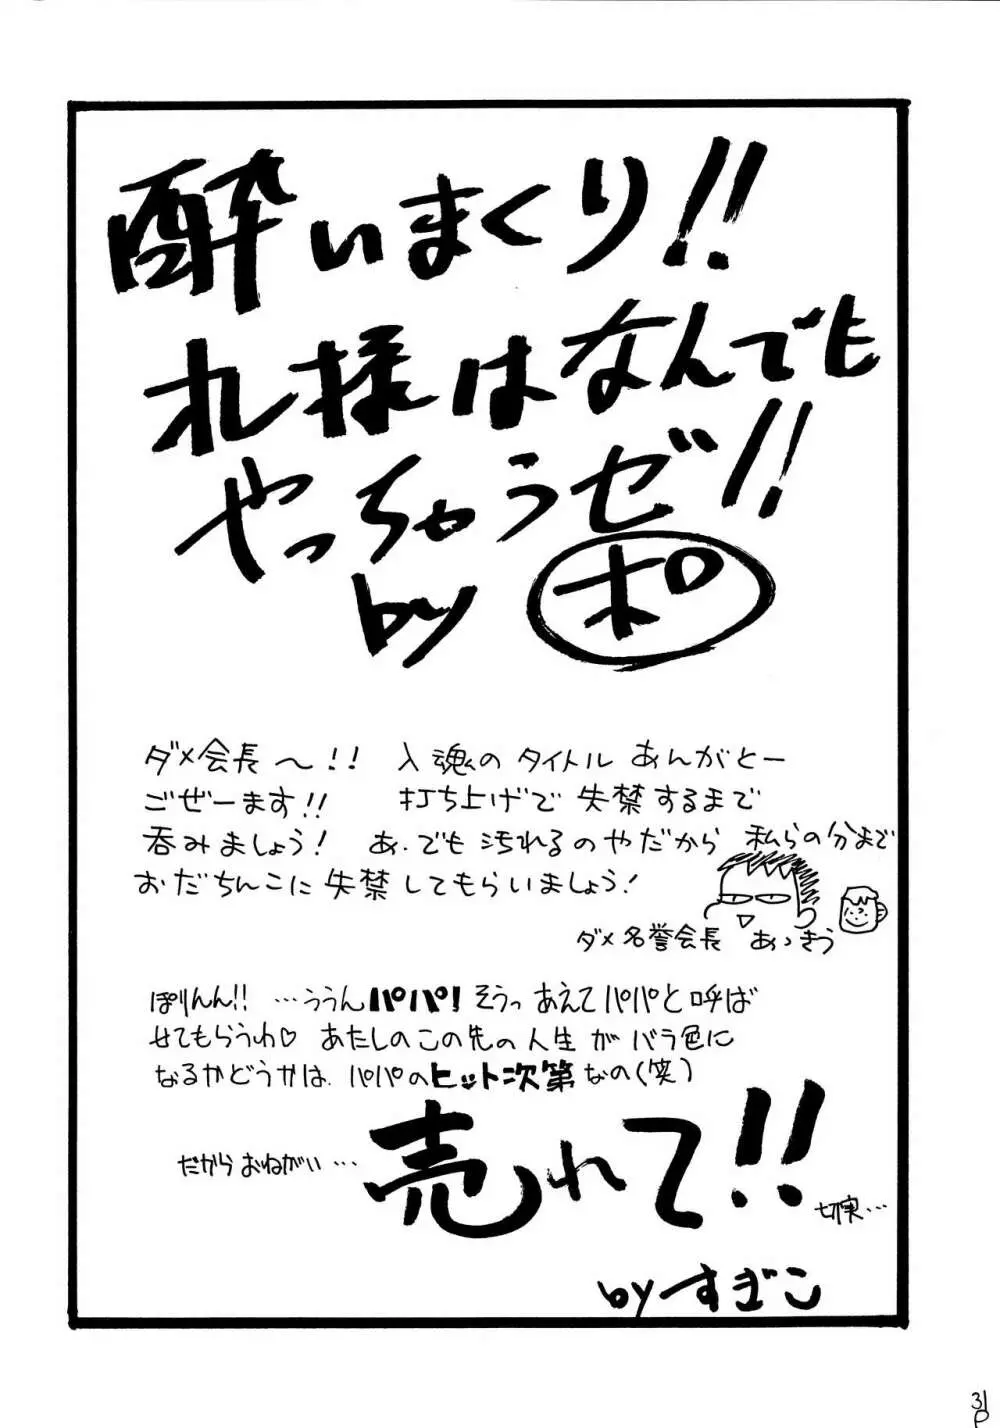 酔いまくり!!
オレ様はなんでも
やっちゃうゼ!!
by ポ
ダメ会長〜!! 入魂のタイトル あんがとー
ごぜーます!! 打ち上げで失禁するまで
呑みましょう! あ.でも汚れるのやだから 私らの分まで
おだちんこに失禁してもらいましょう!
ダメ名誉会長 あっきう
ぽりんん!! …ううんパパ! そうっ あえてパパと呼ば
せてもらうわ♡ あたしのこの先の人生がバラ色に
なるかどうかは、パパのヒット次第なの(笑)
だから おねがい… 売れて!!
切実…
by すぎこ
31P